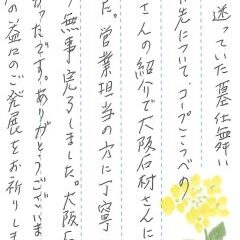 迷っていた墓仕舞い
先について、コープこうべの
さんの紹介で大阪石材さんに
た。営業担当の方に丁寧
無事完了しました。大阪石
かったです。ありがとうございま
の益々のご発展をお祈りしま